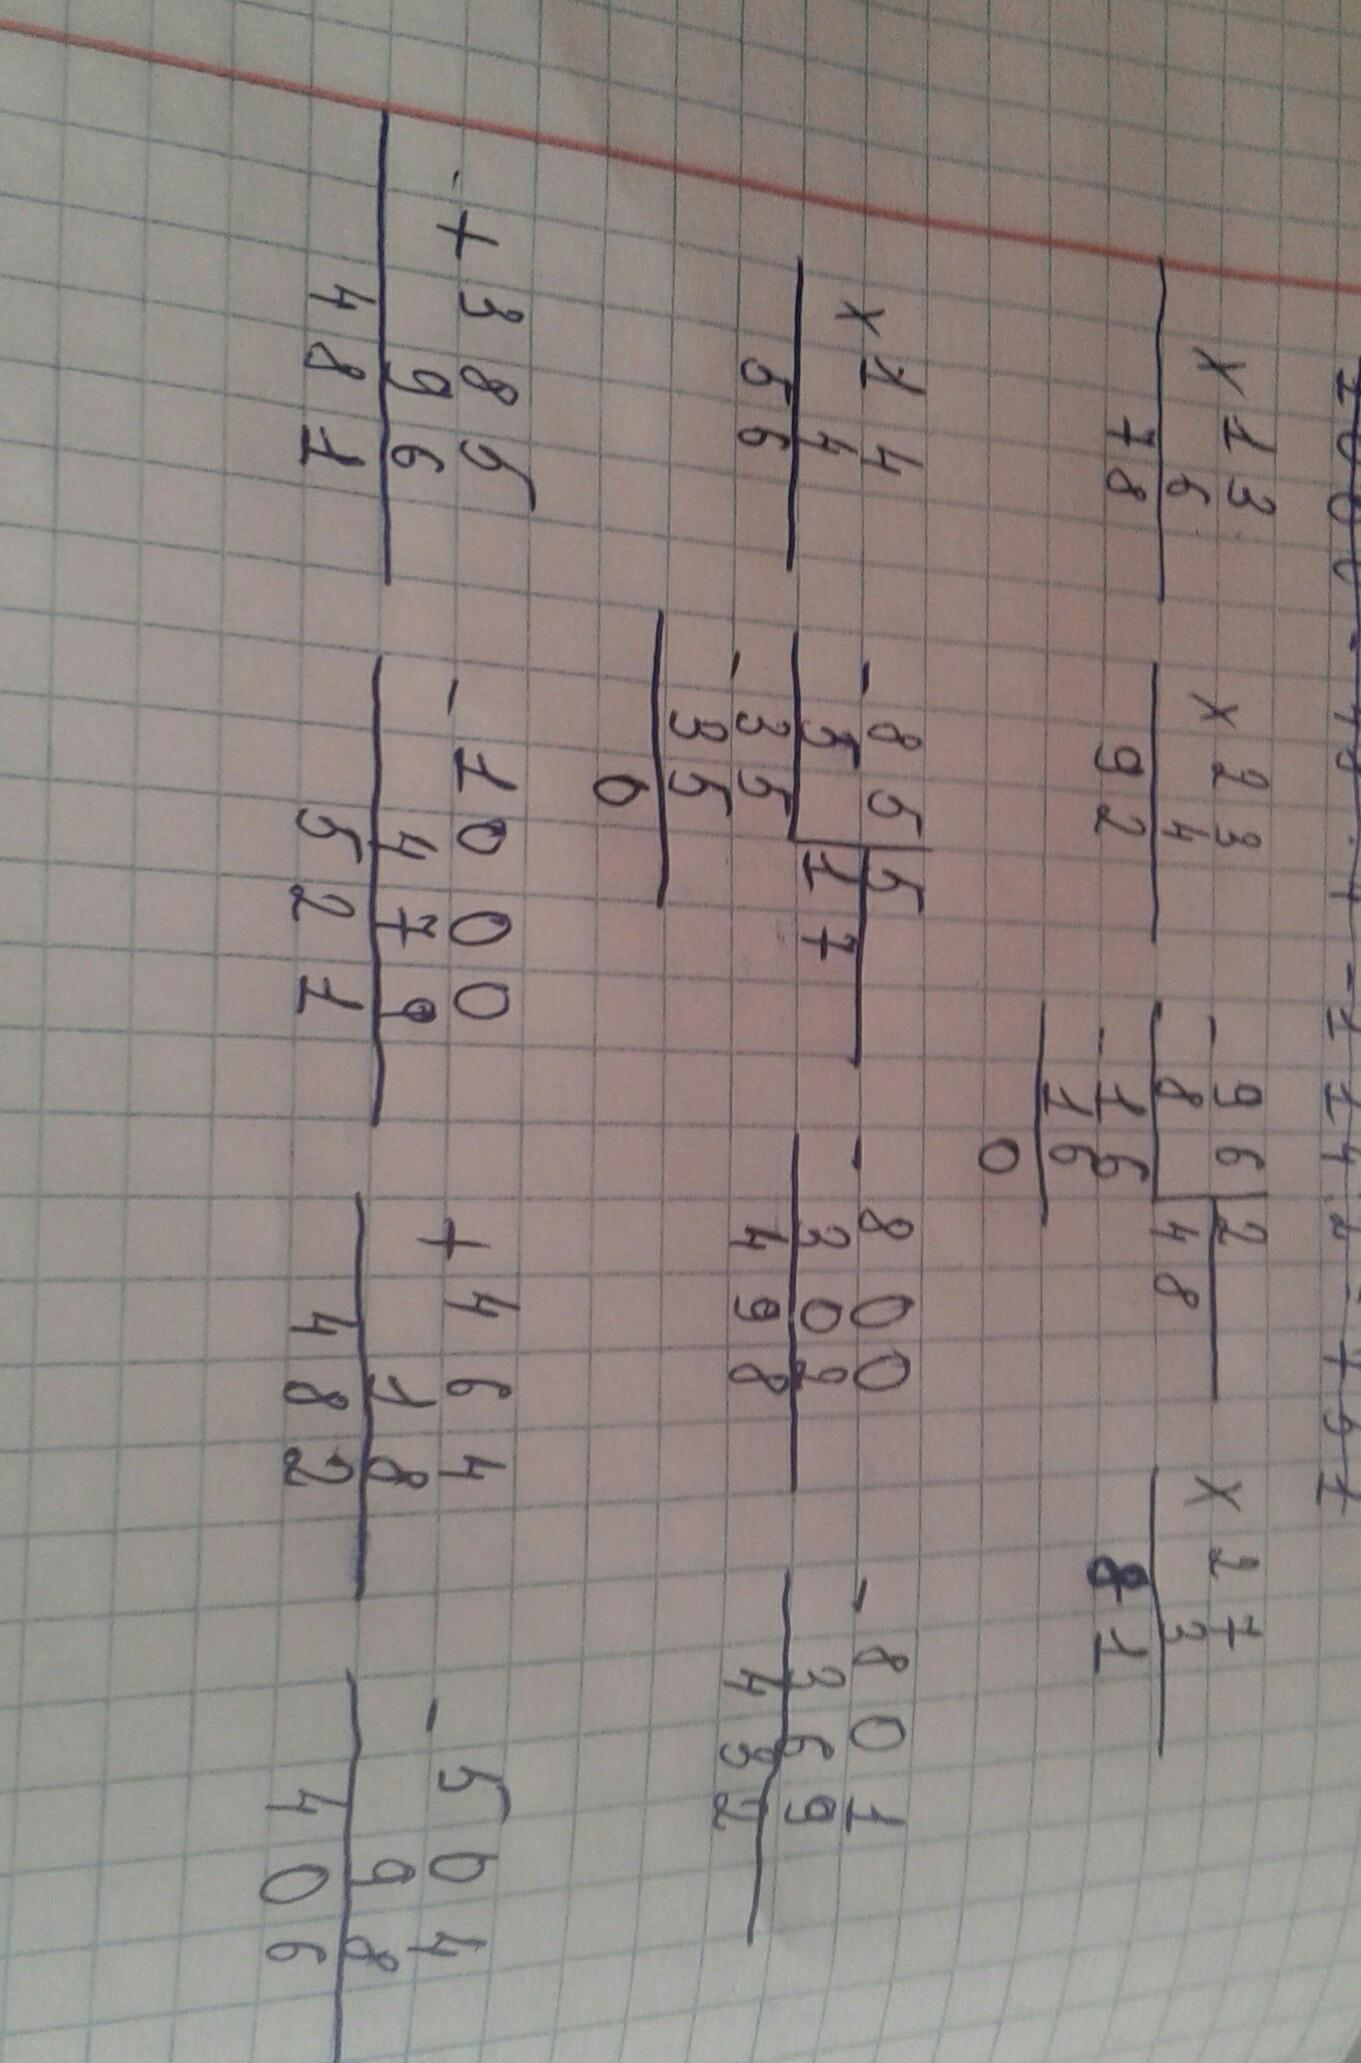 × 13   × 23   - 96 | 2   × 27
6   4   8   48   3
78   92   - 16   81
16
0
× 14   - 85 | 5   - 800   - 801
4   5   17   302   369
56   - 35   498   432
35
0
+ 385   - 1000   + 464   - 504
96   479   18   98
481   521   482   406